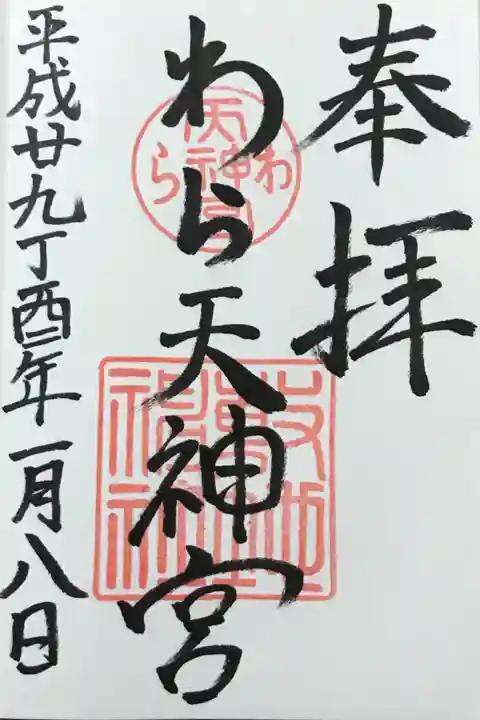 奉拝
わら天神宮
わら天神宮
敷地神社
平成廿九丁酉年一月八日